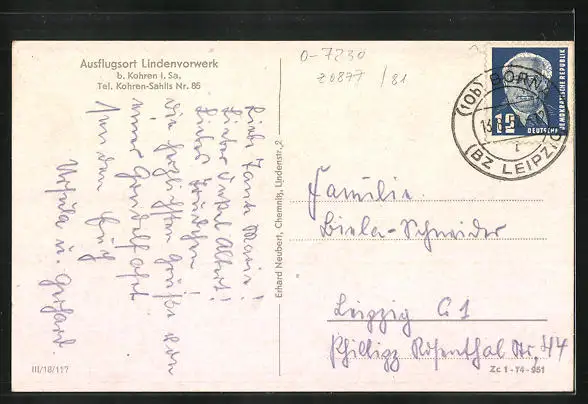 Ausflugsort Lindenvorwerk
b. Kohren i. Sa.
Tel. Kohren-Sahlis Nr. 85
Liebe Tante Marie!
Lieber Onkel Albert!
Liebes
Die herzlichsten Grüße von
einer Gondelfahrt
senden Euch
Ursula u. Gerhard.
III/18/117
Erhard Neubert, Chemnitz, Lindenstr. 2
0-7230
20877 /81
(10b) BORNA
13.
(BZ LEIPZIG)
12
DEUTSCHE
DEMOKRATISCHE REPUBLIK
Familie
Biela-Schneider
Leipzig C 1
Philipp Rosenthal Str, 44
Zc 1-74-951